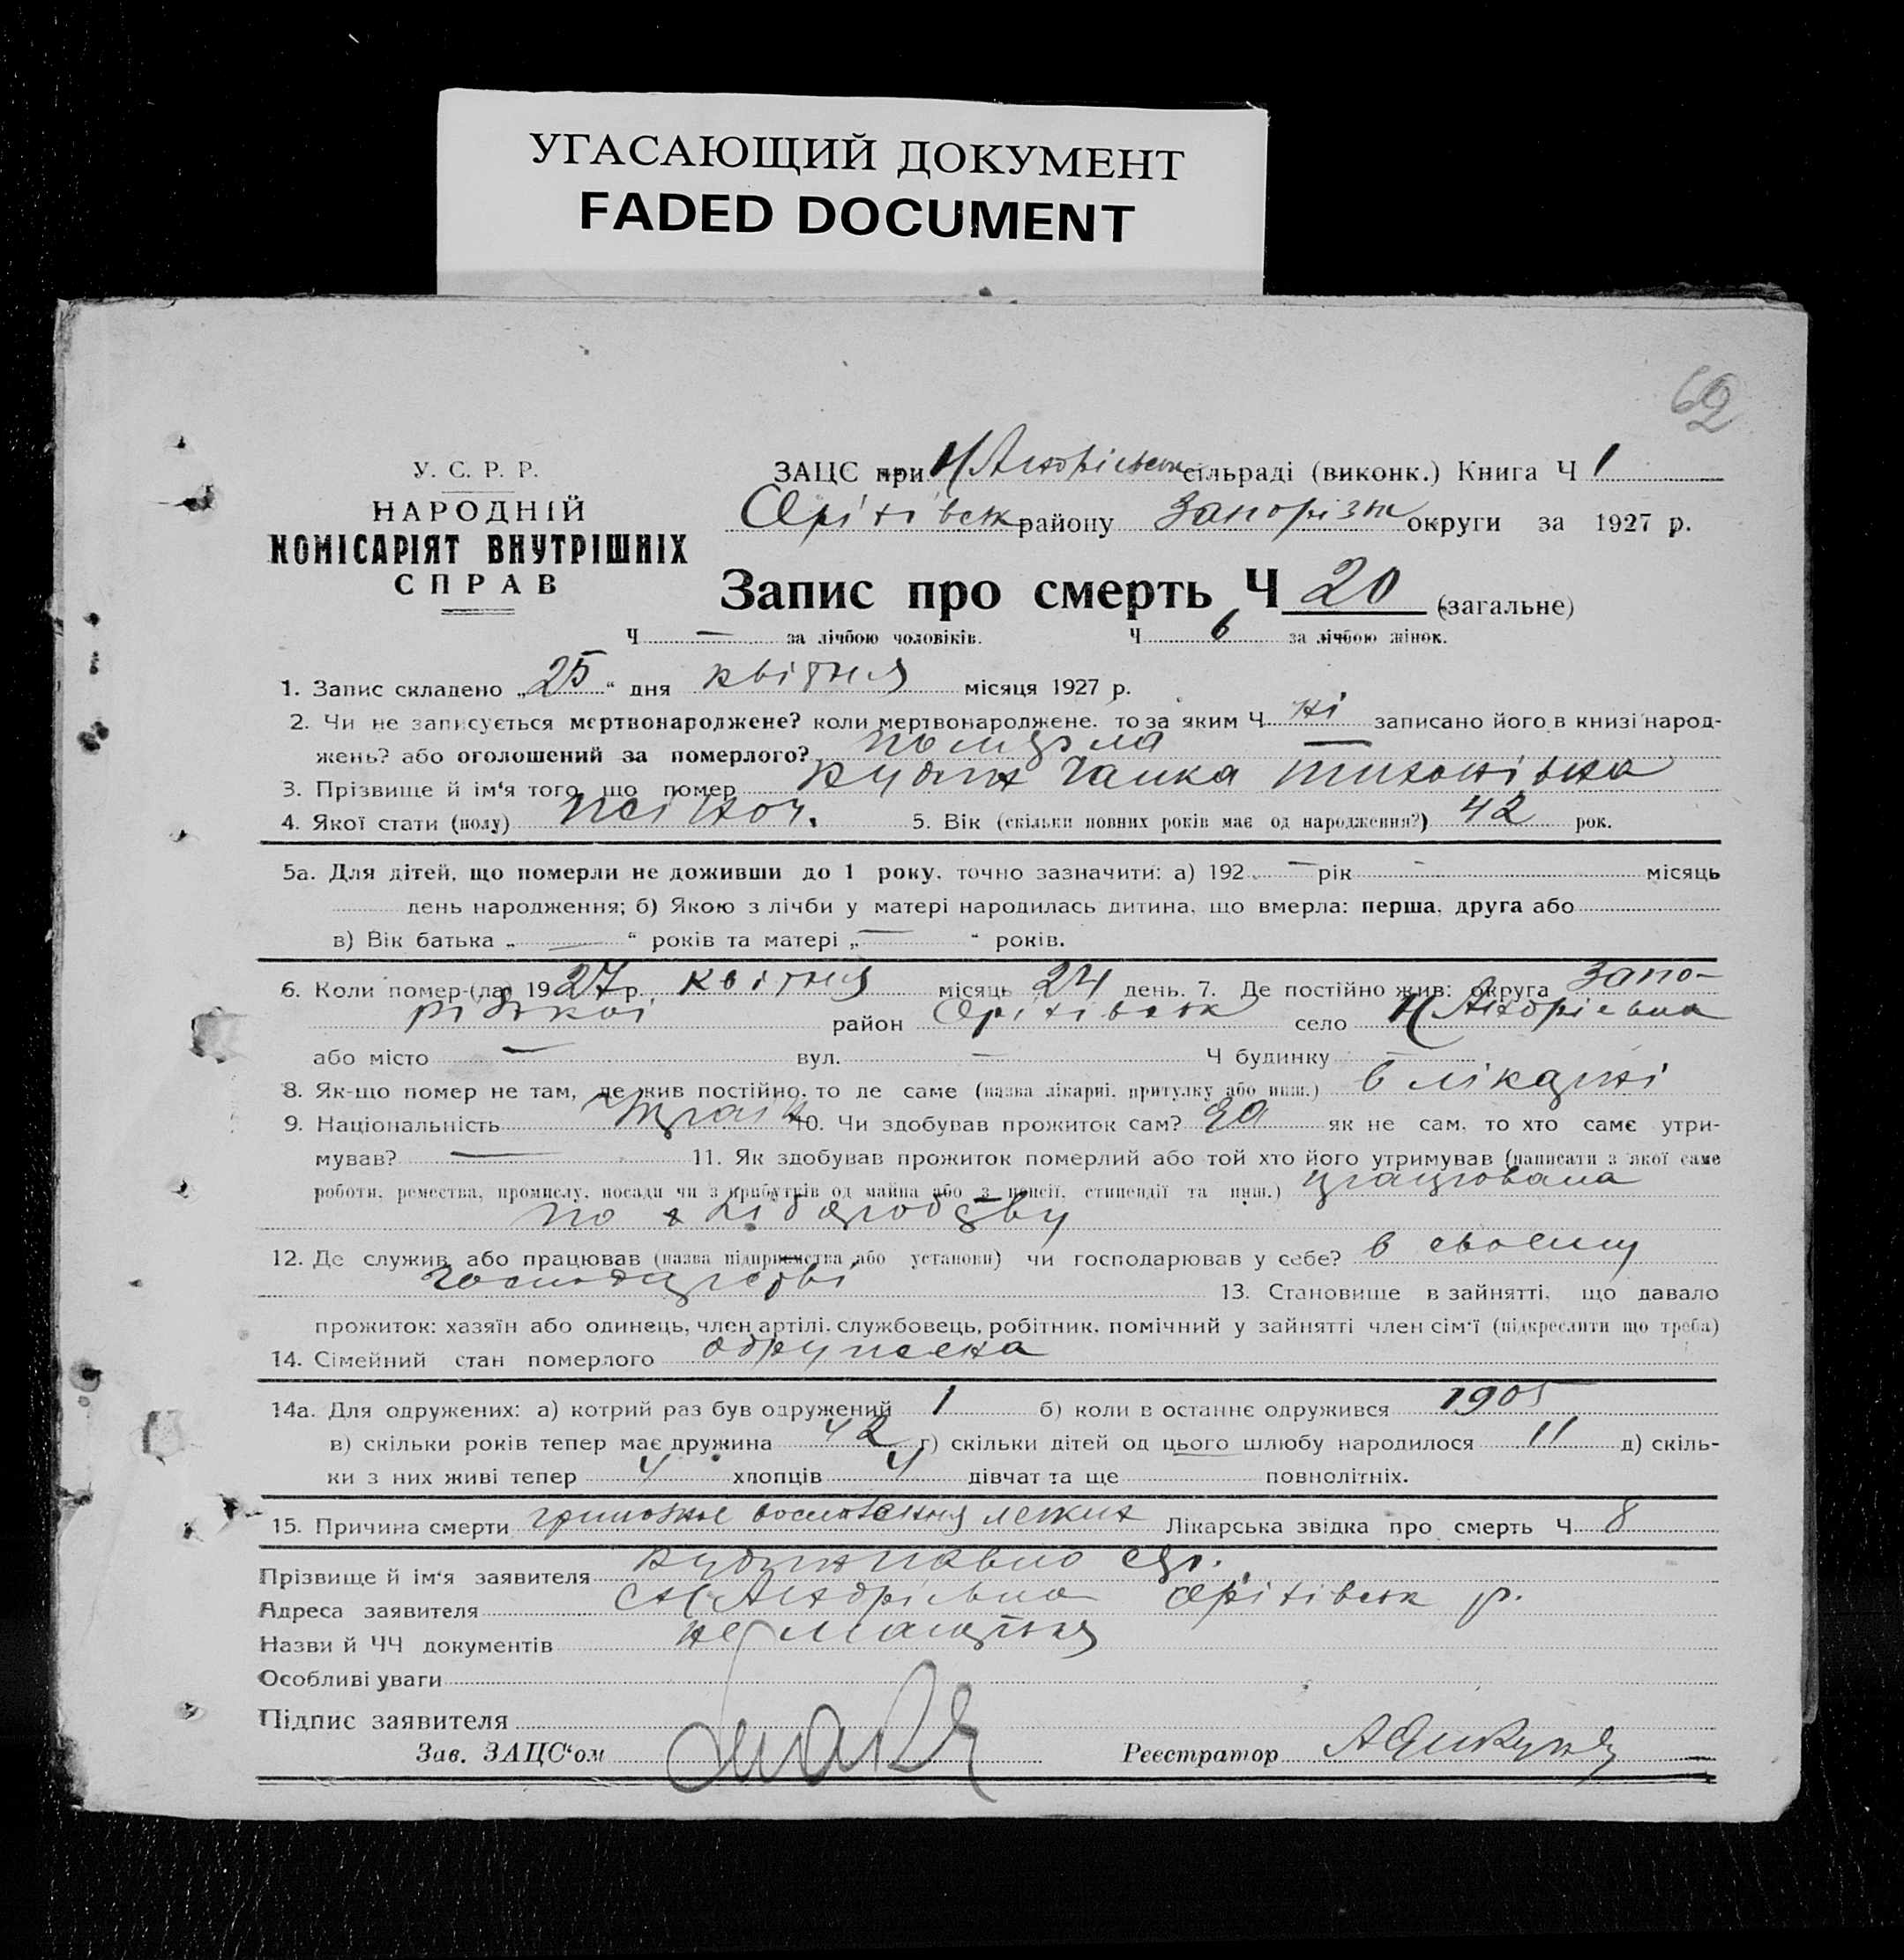 УГАСАЮЩИЙ ДОКУМЕНТ
FADED DOCUMENT
62
У. С. Р. Р.
НАРОДНІЙ
КОМІСАРІЯТ ВНУТРІШНІХ
СПРАВ
ЗАЦС при Н Андрієвськ сільраді (виконк.) Книга Ч 1
Оріхівськ району Запоріжж округи за 1927 р.
Запис про смерть Ч 20 (загальне)
Ч — за лічбою чоловіків. Ч 6 за лічбою жінок.
1. Запис складено „25“ дня квітня місяця 1927 р.
2. Чи не записується мертвонароджене? коли мертвонароджене, то за яким Ч ні записано його в книзі народ-
жень? або оголошений за померлого? померла —
3. Прізвище й ім‘я того, що помер Ганка Тихонівна
4. Якої стати (полу) жіноч. 5. Вік (скільки повних років має од народження?) 42 рок.
5а. Для дітей, що померли не доживши до 1 року, точно зазначити: а) 192 — рік - місяць
день народження; б) Якою з лічби у матері народилась дитина, що вмерла: перша, друга або
в) Вік батька „ — “ років та матері „ — “ років.
6. Коли помер-(ла) 1927 р. квітня місяць 24 день. 7. Де постійно жив: округа Запо-
ріської район Оріхівськ село Н Андрієвка
або місто — вул. — Ч будинку —
8. Як-що помер не там, де жив постійно, то де саме (назва лікарні, притулку або инш.) в лікарні
9. Національність 10. Чи здобував прожиток сам? да як не сам, то хто саме утри-
мував? — 11. Як здобував прожиток померлий або той хто його утримував (написати з якої саме
роботи, ремества, промислу, посади чи з прибутків од майна або з пенсії, стипендії та инш.) працювала
по хлібодробству
12. Де служив або працював (назва підприємства або установи) чи господарював у себе? в своєму
господарстві 13. Становище в зайнятті, що давало
прожиток: хазяїн або одинець, член артілі, службовець, робітник, помічний у зайнятті член сім‘ї (підкреслити що треба)
14. Сімейний стан померлого одружена
14а. Для одружених: а) котрий раз був одружений 1 б) коли в останнє одружився 1905
в) скільки років тепер має дружина 42 г) скільки дітей од цього шлюбу народилося 11 д) скіль-
ки з них живі тепер 4 хлопців 4 дівчат та ще повнолітніх.
15. Причина смерти легких Лікарська звідка про смерть Ч 8
Прізвище й ім‘я заявителя
Адреса заявителя с Н Андрієвка Оріхівськ р.
Назви й ЧЧ документів
Особливі уваги
Підпис заявителя
Зав. ЗАЦС‘ом Реєстратор